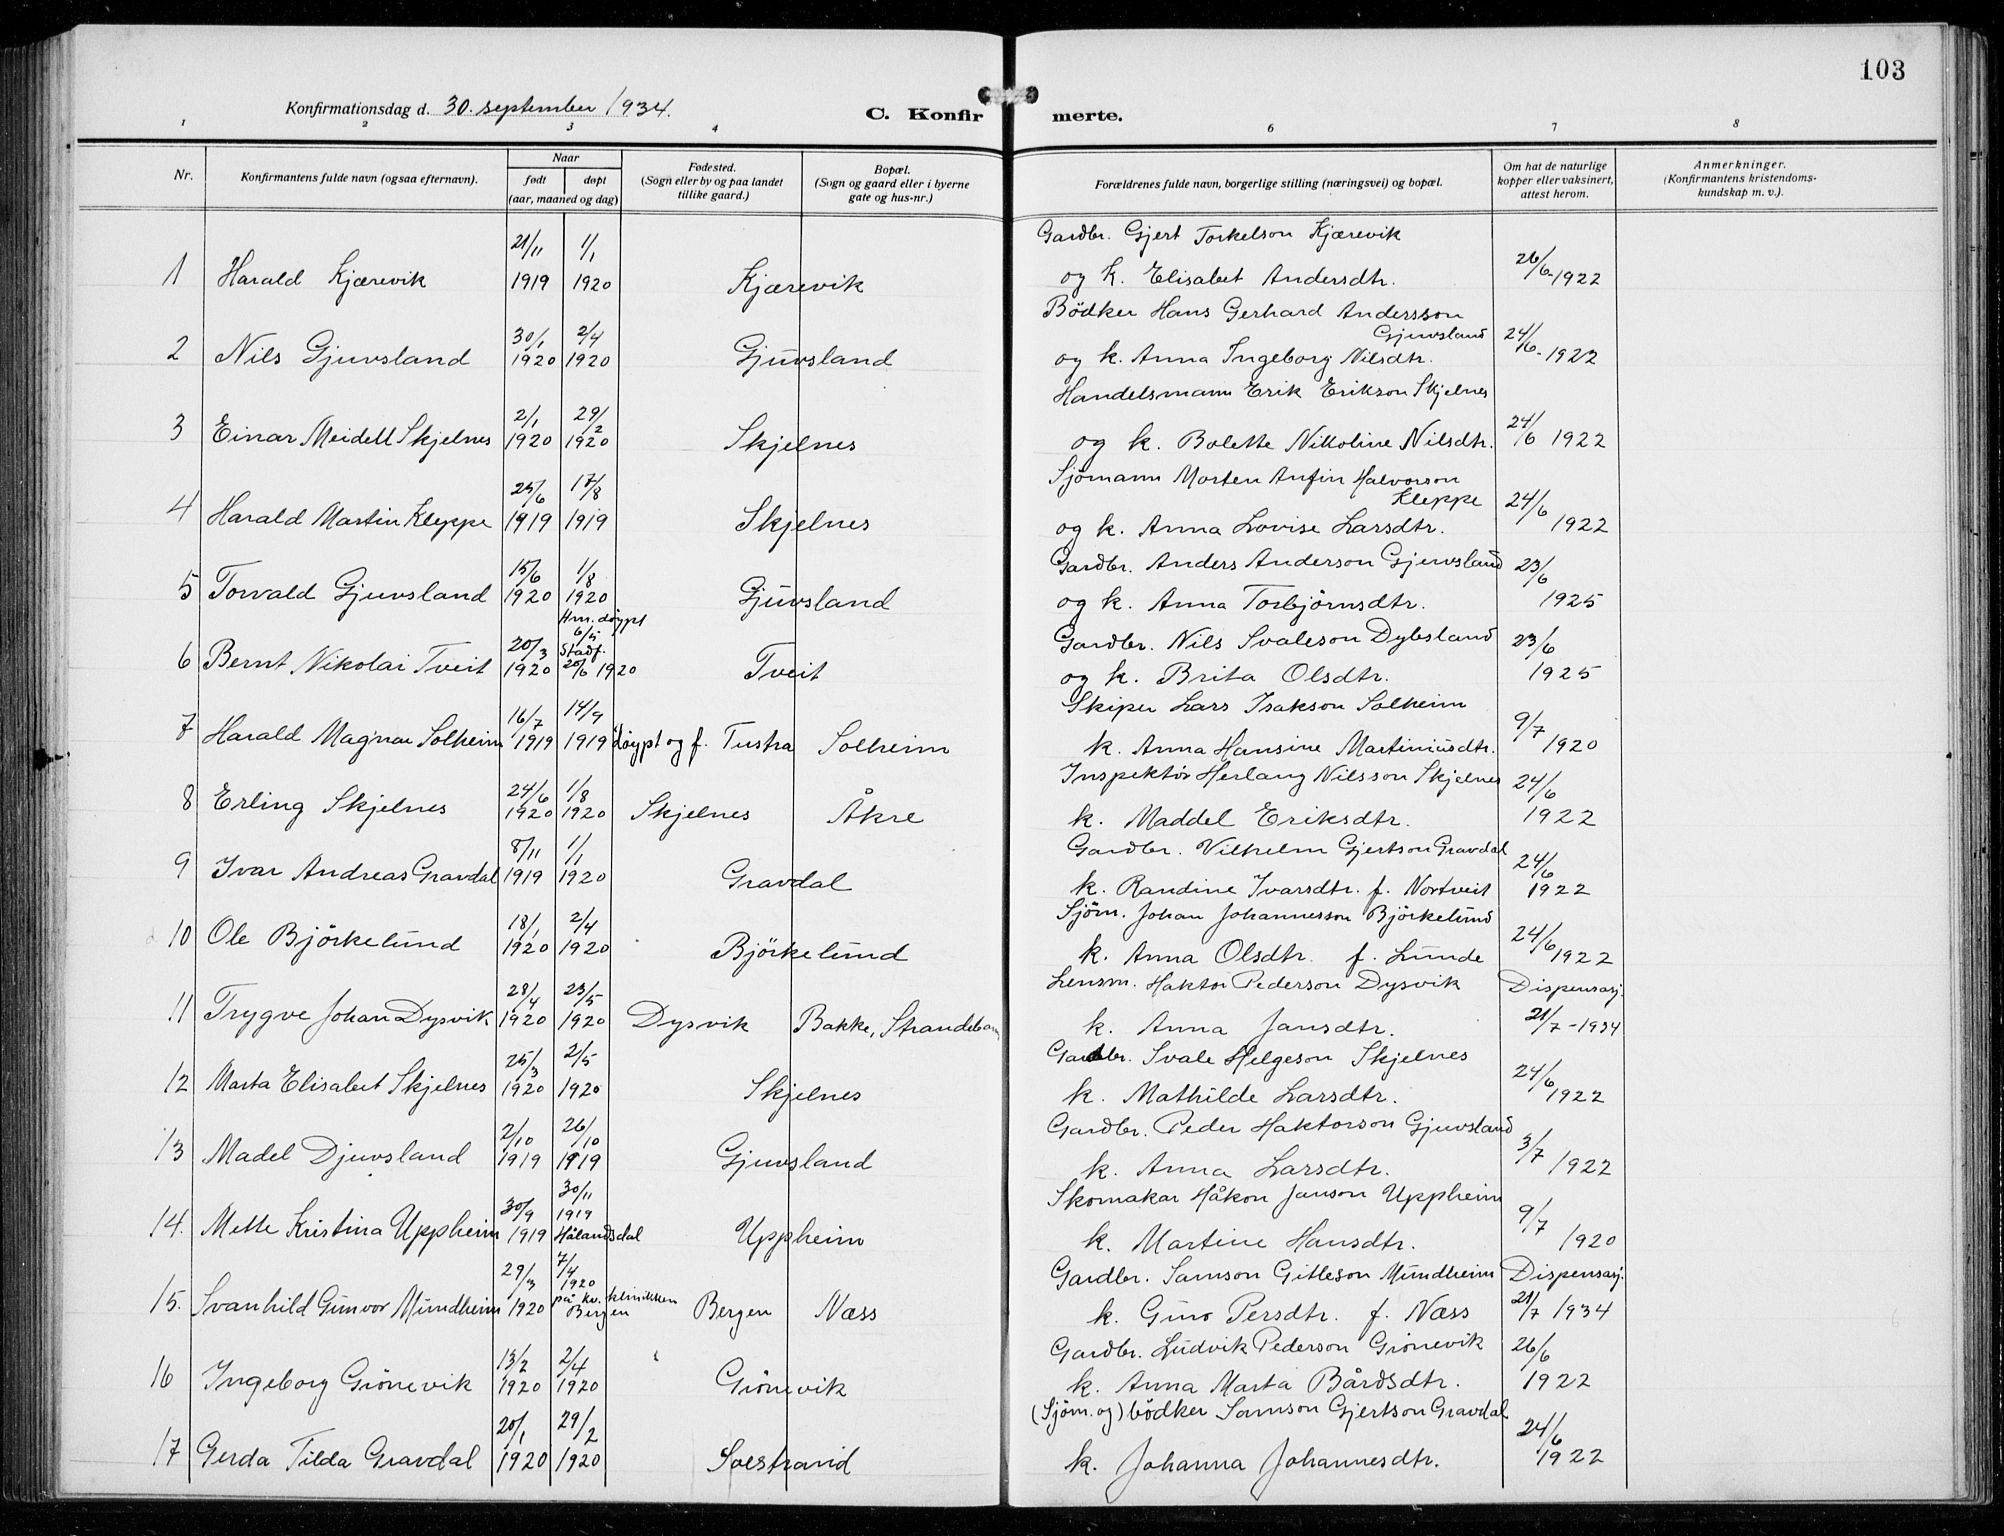 103
Konfirmationsdag d. 30. september 1934.
C. Konfirmerte.
1 2 3 4 5 6 7 8
Nr.
Konfirmantens fulde navn (ogsaa efternavn).
Naar
født døpt
(aar, maaned og dag)
Fødested.
(Sogn eller by og paa landet
tillike gaard.)
Bopæl.
(Sogn og gaard eller i byerne
gate og hus-nr.)
Forældrenes fulde navn, borgerlige stilling (næringsvei) og bopæl.
Om hat de naturlige
kopper eller vaksinert,
attest herom.
Anmerkninger.
(Konfirmantens kristendoms-
kundskap m. v.).
21/11 1/1 Gardbr. Gjert Torkelson Kjærevik
1 Harald Kjærevik 1919 1920 Kjærevik og k. Elisabet Andersdtr. 26/6-1922
30/1 2/4 Bödker Hans Gerhard Andersson
Gjuvsland
2 Nils Gjuvsland 1920 1920 Gjuvsland og k. Anna Ingeborg Nilsdtr. 24/6-1922
2/1 29/2 Handelsmann Erik Erikson Skjelnes
3 Einar Meidell Skjelnes 1920 1920 Skjelnes og k. Bolette Nikoline Nilsdtr. 24/6 1922
25/6 17/8 Sjömann Morten Anfin Halvorson
Kleppe
4 Harald Martin Kleppe 1919 1919 Skjelnes og k. Anna Lovise Larsdtr. 24/6 1922
15/6 1/8 Gardbr. Anders Anderson Gjuvsland 23/6
5 Torvald Gjuvsland 1920 1920 Gjuvsland og k. Anna Torbjörnsdtr. 1925
Hm. döypt
20/3 6/4 Stadf. Gardbr. Nils Svaleson Dybsland 23/6
6 Bernt Nikolai Tveit 1920 20/6 1920 Tveit og k. Brita Olsdtr. 1925
16/7 14/9 Skiper Lars Isakson Solheim
7 Harald Magnar Solheim 1919 1919 döypt og f. Tustra Solheim k. Anna Hansine Martiniusdtr. 9/7 1920
24/6 1/8 Inspektör Herlaug Nilsson Skjelnes 24/6
8 Erling Skjelnes 1920 1920 Skjelnes Åkre k. Maddel Eriksdtr. 1922
8/11 1/1 Gardbr. Vilhelm Gjertson Gravdal 24/6
9 Ivar Andreas Gravdal 1919 1920 Gravdal k. Randine Ivarsdtr. f. Nortveit 1922
18/1 2/4 Sjöm. Johan Johannesson Björkelund
10 Ole Björkelund 1920 1920 Björkelund k. Anna Olsdtr. f. Lunde 24/6 1922
28/4 23/5 Lensm. Haktor Pederson Dysvik Dispensasj.
11 Trygve Johan Dysvik 1920 1920 Dysvik Bakke, Strandebarm k. Anna Jansdtr. 21/7-1934
25/3 2/5 Gardbr. Svale Helgeson Skjelnes
12 Marta Elisabet Skjelnes 1920 1920 Skjelnes k. Mathilde Larsdtr. 24/6 1922
2/10 26/10 Gardbr. Peder Haktorson Gjuvsland
13 Madel Djuvsland 1919 1919 Gjuvsland k. Anna Larsdtr. 3/7 1922
30/9 30/11 1919 Skomakar Håkon Janson Uppheim
14. Mette Kristina Uppheim 1919 Hålandsdal Uppheim k. Martine Hansdtr. 9/7 1920
29/3 7/4 1920 Gardbr. Samson Gitleson Mundheim Dispensasj.
15. Svanhild Gunvor Mundheim 1920 på kv. klinikken Bergen Bergen Næss k. Guro Persdtr. f. Næss 21/7 1934
13/2 2/4 Gardbr. Ludvik Pederson Grönevik 26/6
16 Ingeborg Grönevik 1920 1920 Grönevik k. Anna Marta Bårdsdtr. 1922
20/1 29/2 (Sjöm. og) bödker Samson Gjertson Gravdal
17 Gerda Tilda Gravdal 1920 1920 Solstrand k. Johanna Johannesdtr. 24/6 1922